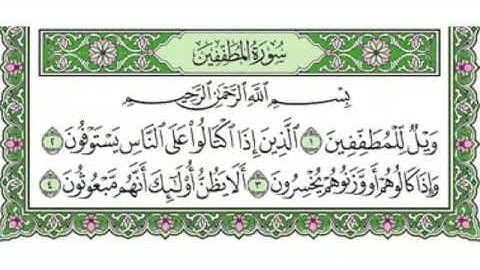 سُورَةُ المُطَفِّفِينَ
بِسْمِ اللَّهِ الرَّحْمَٰنِ الرَّحِيمِ
وَيْلٌ لِّلْمُطَفِّفِينَ ١ الَّذِينَ إِذَا اكْتَالُوا عَلَى النَّاسِ يَسْتَوْفُونَ ٢
وَإِذَا كَالُوهُمْ أَو وَّزَنُوهُمْ يُخْسِرُونَ ٣ أَلَا يَظُنُّ أُولَٰئِكَ أَنَّهُم مَّبْعُوثُونَ ٤